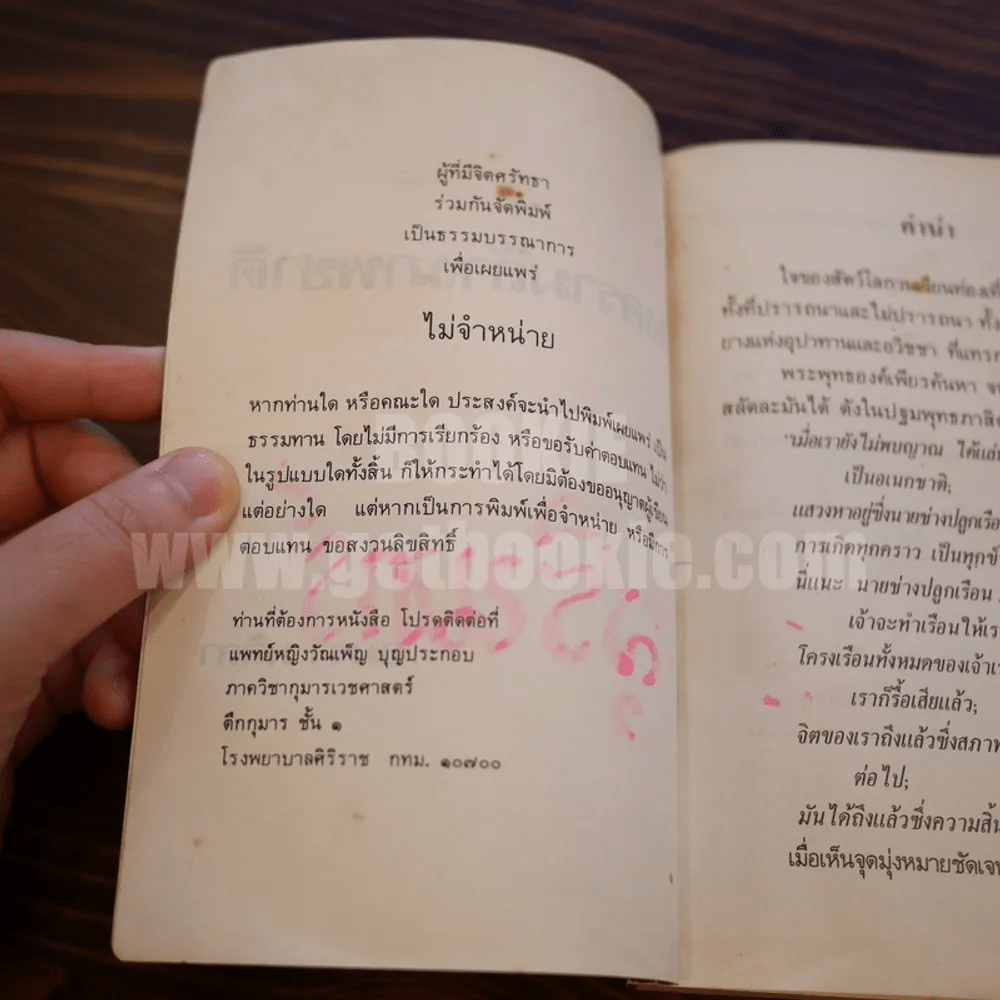 ผู้ที่มีจิตศรัทธา
ร่วมกันจัดพิมพ์
เป็นธรรมบรรณาการ
เพื่อเผยแพร่
ไม่จำหน่าย
หากท่านใด หรือคณะใด ประสงค์จะนำไปพิมพ์เผยแพร่ เป็น
ธรรมทาน โดยไม่มีการเรียกร้อง หรือขอรับค่าตอบแทน ไม่ว่า
ในรูปแบบใดทั้งสิ้น ก็ให้กระทำได้โดยมิต้องขออนุญาตผู้เขียน
แต่อย่างใด แต่หากเป็นการพิมพ์เพื่อจำหน่าย หรือมีการ
ตอบแทน ขอสงวนลิขสิทธิ์
ท่านที่ต้องการหนังสือ โปรดติดต่อที่
แพทย์หญิงวัณเพ็ญ บุญประกอบ
ภาควิชากุมารเวชศาสตร์
ตึกกุมาร ชั้น ๑
โรงพยาบาลศิริราช กทม. ๑๐๗๐๐
www.getbookie.com
คำนำ
ใจของสัตว์โลกวนเวียนท่องเที่
ทั้งที่ปรารถนาและไม่ปรารถนา ทั้ง
ยางแห่งอุปาทานและอวิชชา ที่แทรก
พระพุทธองค์เพียรค้นหา จน
สลัดละมันได้ ดังในปฐมพุทธภาสิต
"เมื่อเรายังไม่พบญาณ ได้แล่น
เป็นอเนกชาติ;
แสวงหาอยู่ซึ่งนายช่างปลูกเรือน
การเกิดทุกคราว เป็นทุกข์
นี่แน่ะ นายช่างปลูกเรือน
เจ้าจะทำเรือนให้เรา
โครงเรือนทั้งหมดของเจ้าเรา
เราก็รื้อเสียแล้ว;
จิตของเราถึงแล้วซึ่งสภาพ
ต่อไป;
มันได้ถึงแล้วซึ่งความสิ้น
เมื่อเห็นจุดมุ่งหมายชัดเจน